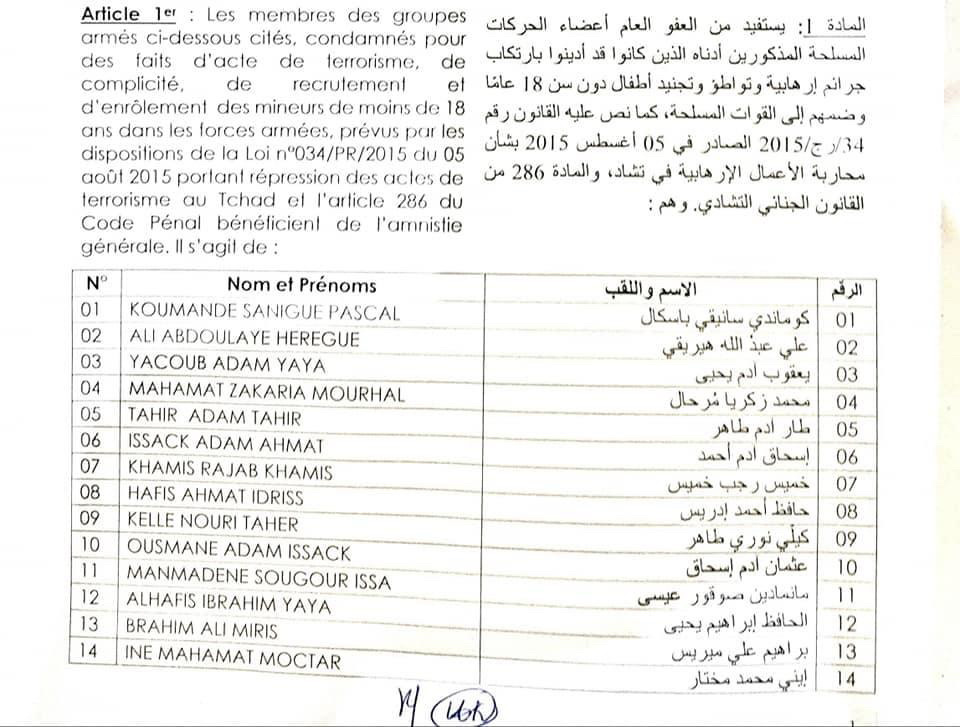 Article 1er : Les membres des groupes
armés ci-dessous cités, condamnés pour
des faits d'acte de terrorisme, de
complicité, de recrutement et
d'enrôlement des mineurs de moins de 18
ans dans les forces armées, prévus par les
dispositions de la Loi n°034/PR/2015 du 05
août 2015 portant répression des actes de
terrorisme au Tchad et l'article 286 du
Code Pénal bénéficient de l'amnistie
générale. Il s'agit de :
المادة 1: يستفيد من العفو العام أعضاء الحركات
المسلحة المذكورين أدناه الذين كانوا قد أدينوا بارتكاب
جرائم إرهابية وتواطؤ وتجنيد أطفال دون سن 18 عامًا
وضمهم إلى القوات المسلحة، كما نص عليه القانون رقم
34/ر ج/2015 الصادر في 05 أغسطس 2015 بشأن
محاربة الأعمال الإرهابية في تشاد، والمادة 286 من
القانون الجنائي التشادي. وهم :
N° Nom et Prénoms الاسم واللقب الرقم
01 KOUMANDE SANIGUE PASCAL كوماندي سانيقي باسكال 01
02 ALI ABDOULAYE HEREGUE علي عبد الله هيريقي 02
03 YACOUB ADAM YAYA يعقوب أدم يحيى 03
04 MAHAMAT ZAKARIA MOURHAL محمد زكريا مُرحال 04
05 TAHIR ADAM TAHIR طار أدم طاهر 05
06 ISSACK ADAM AHMAT إسحاق أدم أحمد 06
07 KHAMIS RAJAB KHAMIS خميس رجب خميس 07
08 HAFIS AHMAT IDRISS حافظ أحمد إدريس 08
09 KELLE NOURI TAHER كيلّي نوري طاهر 09
10 OUSMANE ADAM ISSACK عثمان أدم إسحاق 10
11 MANMADENE SOUGOUR ISSA مانمادين صوقور عيسى 11
12 ALHAFIS IBRAHIM YAYA الحافظ إبراهيم يحيى 12
13 BRAHIM ALI MIRIS براهيم علي ميريس 13
14 INE MAHAMAT MOCTAR إيني محمد مختار 14